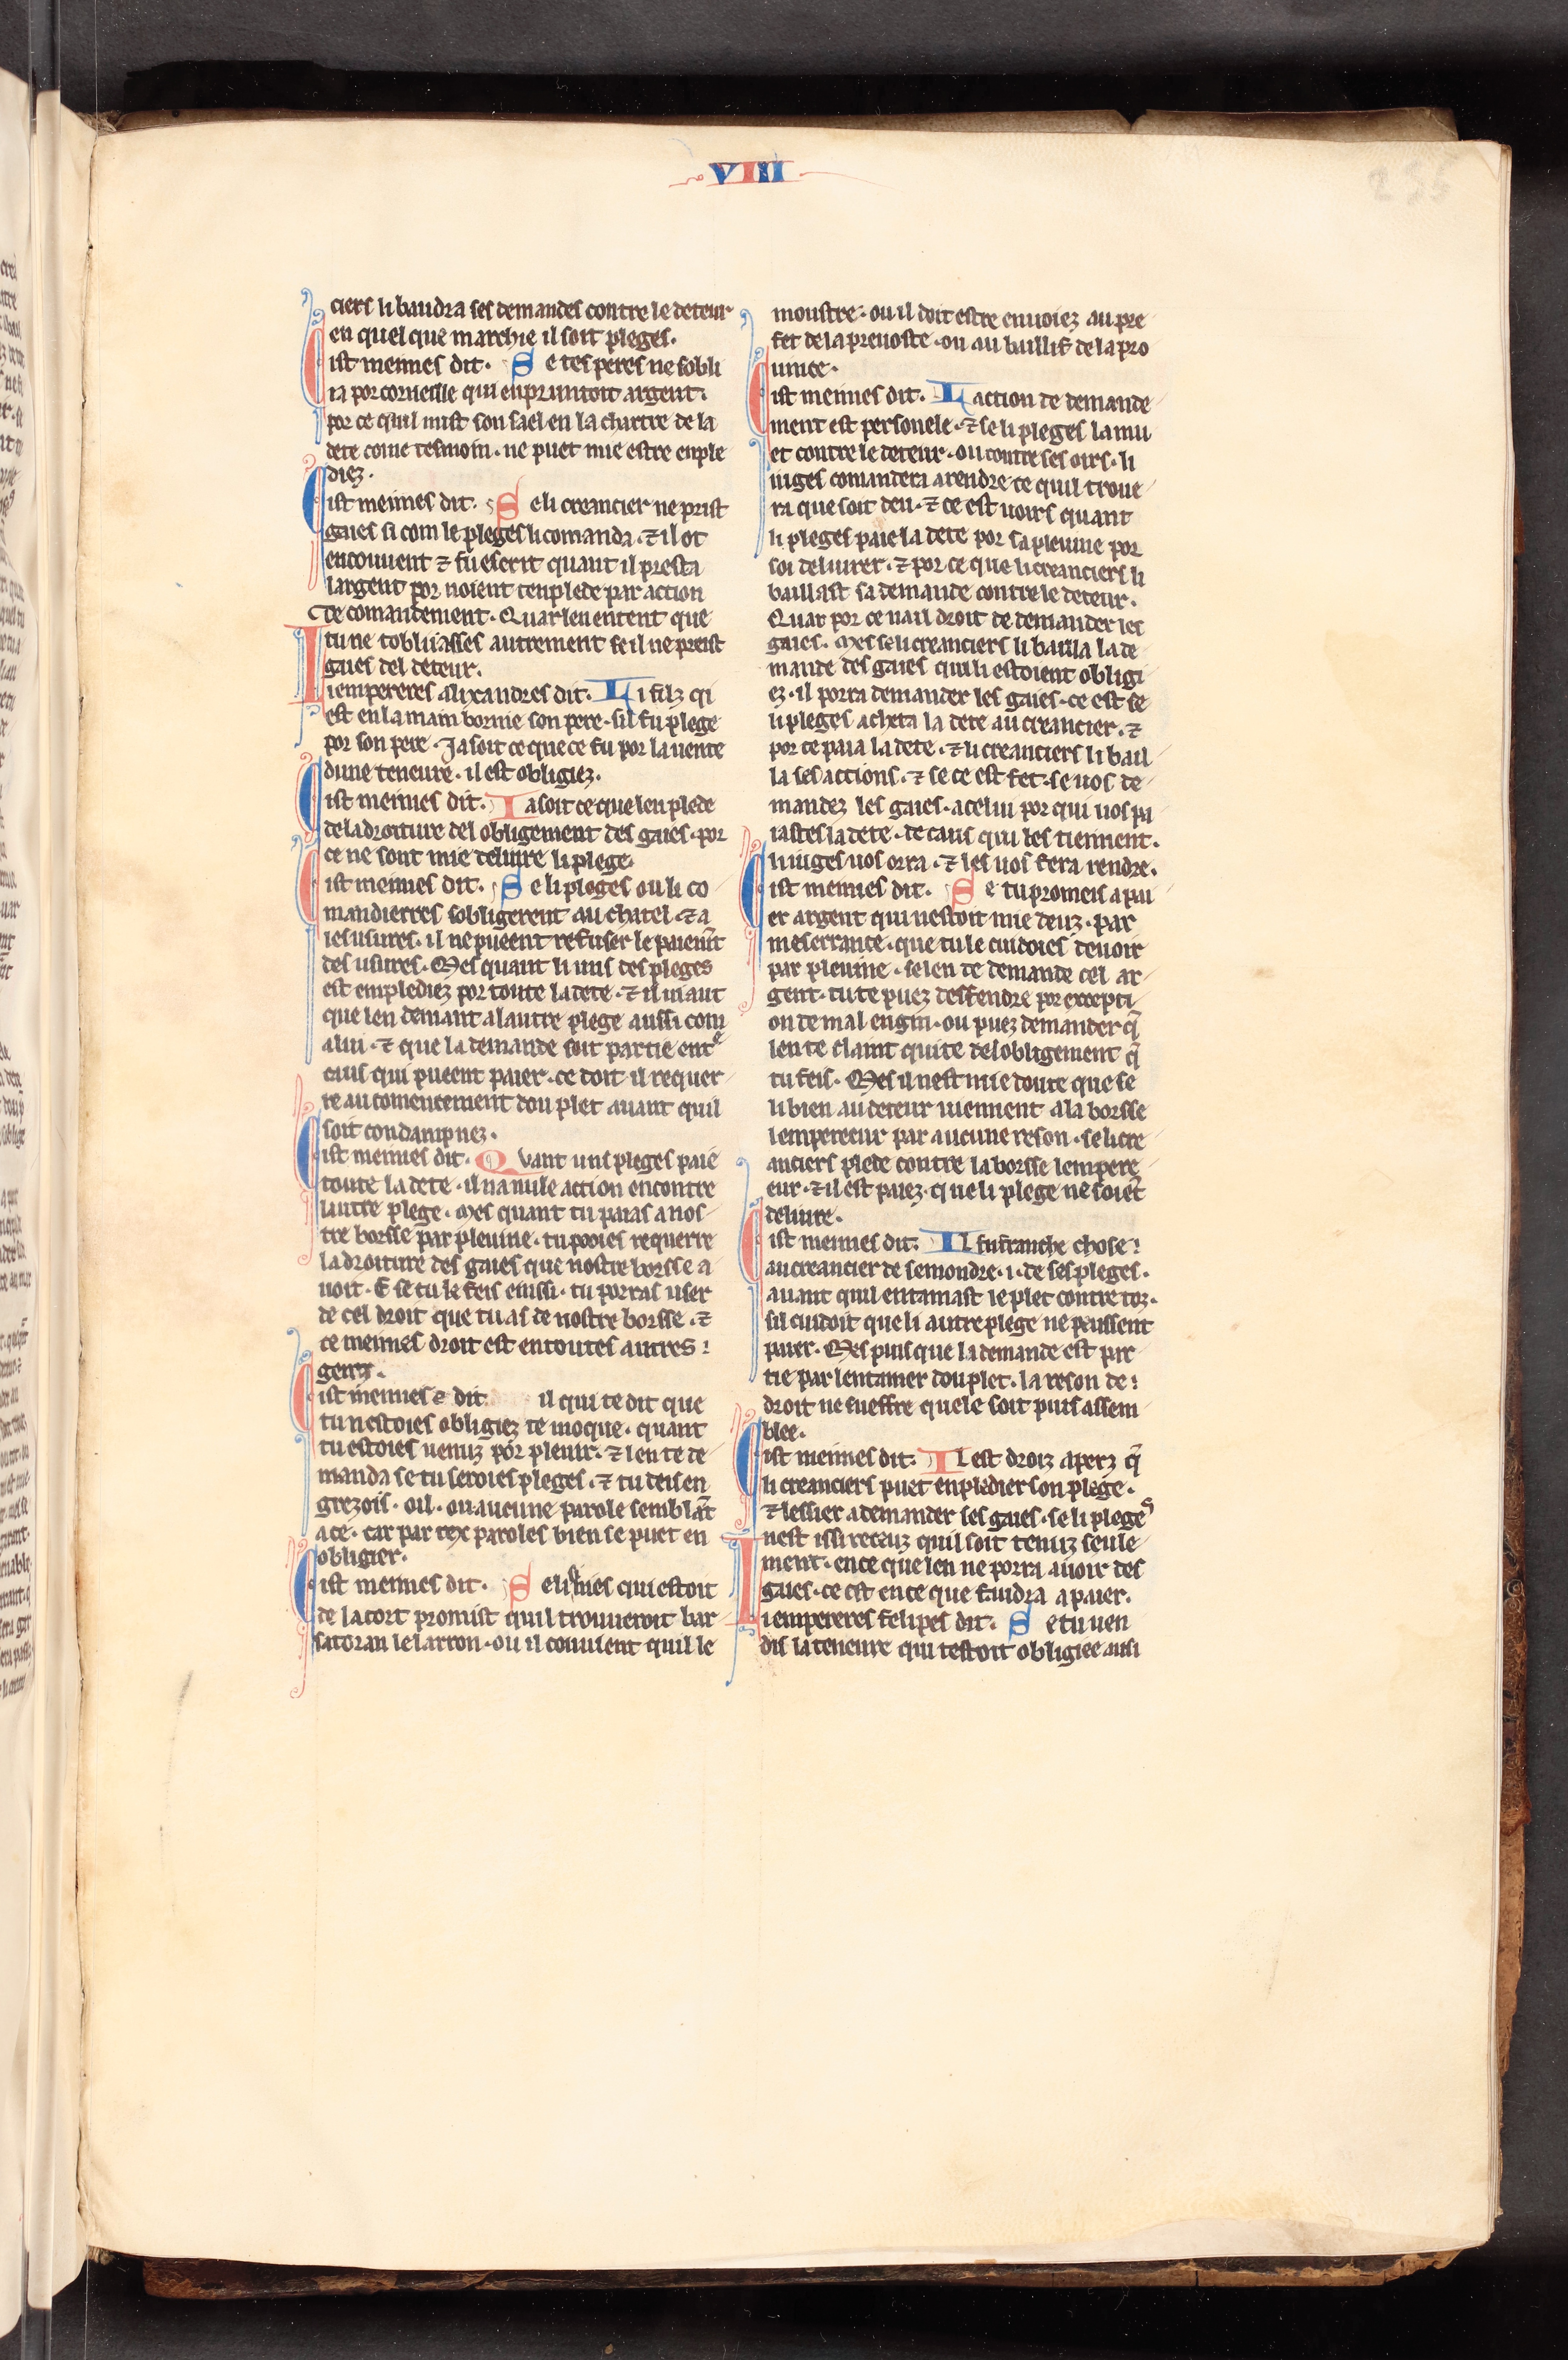 VIII
255
ciers li baudra ses demandes contre le deteur
en quel que marchie il soit pleges.
Cist meimes dit. Se tes peres ne sobli
ra por corneille qui enpruntoit argent.
por ce quil mist son sael en la chartre de la
dete come tesmoin. ne puet mie estre enple
diez.
Cist meimes dit. Se li creancier ne prist
gaies si com le pleges li comanda. ⁊ il ot
encouuent ⁊ fu escrit quant il presta
largent por noient tenplede par action
de comandement. Quar len entent que
tu ne tobliiasses autrement se il ne preist
gaies del deteur.
Li empereres alixandres dit. Li filz qi
est en la main bornie son pere. sil fu plege
por son pere. Ja soit ce que ce fu por la uente
dune teneure. il est obligiez.
Cist meimes dit. Ia soit ce que len plede
de la droiture del obligement des gaies. por
ce ne sont mie deliure li plege.
Cist meimes dit. Se li pleges ou li co
mandierres sobligerent au chatel. ⁊ a
les usures. il ne pueent refuser le paiemt̃
des usures. Mes quant li uns des pleges
est emplediez por toute la dete. ⁊ il uiaut
que len demant a lautre plege aussi com
a lui. ⁊ que la demande soit partie entᵉ
ceus qui pueent paier. ce doit il requer
re au comencement dou plet auant quil
soit condampnez.
Cist meimes dit. Quant uns pleges paie
toute la dete. il na nule action encontre
lautre plege. Mes quant tu paias a nos
tre borsse par pleuine. tu pooies requerre
la droiture des gaies que nostre borsse a
uoit. E se tu le feis einssi. tu porras user
de cel droit que tu as de nostre borsse. ⁊
ce meimes droit est en toutes autres
genz.
Cist meimes dit. il qui te dit que
tu nestoies obligiez te moque. quant
tu estoies uenuz por pleuir. ⁊ len te de
manda se tu seroies pleges. ⁊ tu deis en
grezois. oil. ou aucune parole semblãt
a ce. car par tex paroles bien se puet en
obligier.
Cist meimes dit. Se li mes qui estoit
de la cort promist quil trouueroit bar
satoran le larron. ou il couuient quil le
moustre. ou il doit estre enuoiez au pre
fet de la preuoste. ou au baillif de la pro
uince.
Cist meimes dit. Laction de demande
ment est personele. ⁊ se li pleges la mu
et contre le deteur. ou contre ses oirs. li
iuges comandera a rendre ce quil troue
ra que soit deu. ⁊ ce est uoirs quant
li pleges paie la dete por sa pleuine por
soi deliurer. ⁊ por ce que li creanciers li
baillast sa demande contre le deteur.
Quar por ce nail droit de demander les
gaies. Mes se li creanciers li bailla la de
mande des gaies qui li estoient obligi
ez. il porra demander les gaies. ce est se
li pleges acheta la dete au creancier. ⁊
por ce paia la dete. ⁊ li creanciers li bail
la ses actions. ⁊ se ce est fet. se uos de
mandez les gaies. a celui por qui uos pa
iastes la dete. de caus qui les tiennent.
li iuges uos orra. ⁊ les uos fera rendre.
Cist meimes dit. Se tu promeis a pai
er argent qui nestoit mie deuz. par
meserrance. que tu le cuidoies deuoir
par pleuine. se len te demande cel ar
gent. tu te puez deffendre por excepti
on de mal engin. ou puez demander q̃
len te claint quite del obligement q̃
tu feis. Mes il nest mie doute que se
li bien au deteur uiennent a la borsse
lempereeur par aucune reson. se li cre
anciers plede contre la borsse lempere
eur. ⁊ il est paiez. que li plege ne soiẽt
deliure.
Cist meimes dit. Il fu franche chose
au creancier de semondre .i. de ses pleges.
auant quil entamast le plet contre toz.
sil cuidoit que li autre plege ne peussent
paier. Mes puis que la demande est par
tie par lentamer dou plet. la reson de
droit ne sueffre quele soit puis assem
blee.
Cist meimes dit. Il est droiz aperz q̃
li creanciers puet enpledier son plege.
⁊ lessier a demander ses gaies. se li plegeˢ
nest issi receuz quil soit tenuz seule
ment. en ce que len ne porra auoir des
gaies. ce est en ce que faudra a paier.
Li empereres felipes dit. Se tu uen
dis la teneure qui testoit obligiee ausi